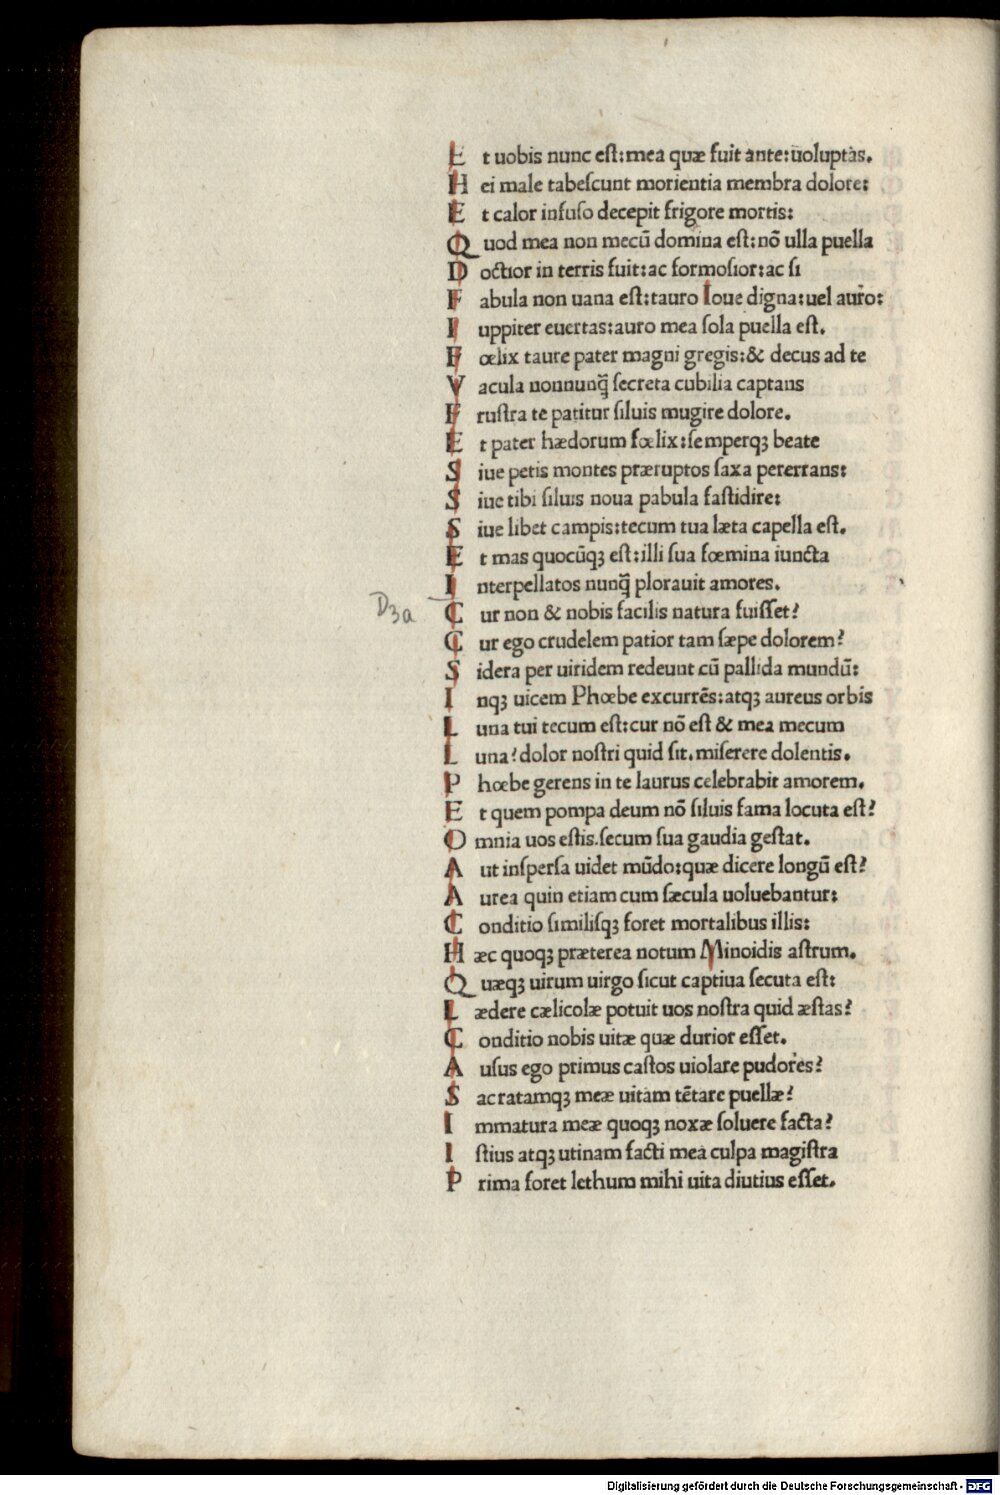 Et uobis nunc eſt:mea quæ fuit ante:uoluptas.
Hei male tabeſcunt morientia membra dolore:
Et calor infuſo decepit frigore mortis:
Quod mea non mecū domina eſt:nō ulla puella
Doctior in terris fuit:ac formoſior:ac ſi
Fabula non uana eſt:tauro Ioue digna:uel auro:
Iuppiter euertas:auro mea ſola puella eſt.
Fœlix taure pater magni gregis:& decus ad te
Vacula nonnunq̄ ſecreta cubilia captans
Fruſtra te patitur ſiluis mugire dolore.
Et pater hædorum fœlix:ſemperqꝫ beate
Siue petis montes præruptos ſaxa pererrans:
Siue tibi ſiluis noua pabula faſtidire:
Siue libet campis:tecum tua læta capella eſt.
Et mas quocūqꝫ eſt:illi ſua fœmina iuncta
Interpellatos nunq̄ plorauit amores.
D3a
Cur non & nobis facilis natura fuiſſet?
Cur ego crudelem patior tam ſæpe dolorem?
Sidera per uiridem redeunt cū pallida mundū:
Inqꝫ uicem Phœbe excurrēs:atqꝫ aureus orbis
Luna tui tecum eſt:cur nō eſt & mea mecum
Luna?dolor noſtri quid ſit.miſerere dolentis.
Phœbe gerens in te laurus celebrabit amorem.
Et quem pompa deum nō ſiluis fama locuta eſt?
Omnia uos eſtis.ſecum ſua gaudia geſtat.
Aut inſperſa uidet mūdo:quæ dicere longū eſt?
Aurea quin etiam cum ſæcula uoluebantur:
Conditio ſimiliſqꝫ foret mortalibus illis:
Hæc quoqꝫ præterea notum Minoidis aſtrum.
Quæqꝫ uirum uirgo ſicut captiua ſecuta eſt:
Lædere cælicolæ potuit uos noſtra quid æſtas?
Conditio nobis uitæ quæ durior eſſet.
Auſus ego primus caſtos uiolare pudores?
Sacratamqꝫ meæ uitam tētare puellæ?
Immatura meæ quoqꝫ noxæ ſoluere facta?
Iſtius atqꝫ utinam facti mea culpa magiſtra
Prima foret lethum mihi uita diutius eſſet.
Digitalisierung gefördert durch die Deutsche Forschungsgemeinschaft - DFG